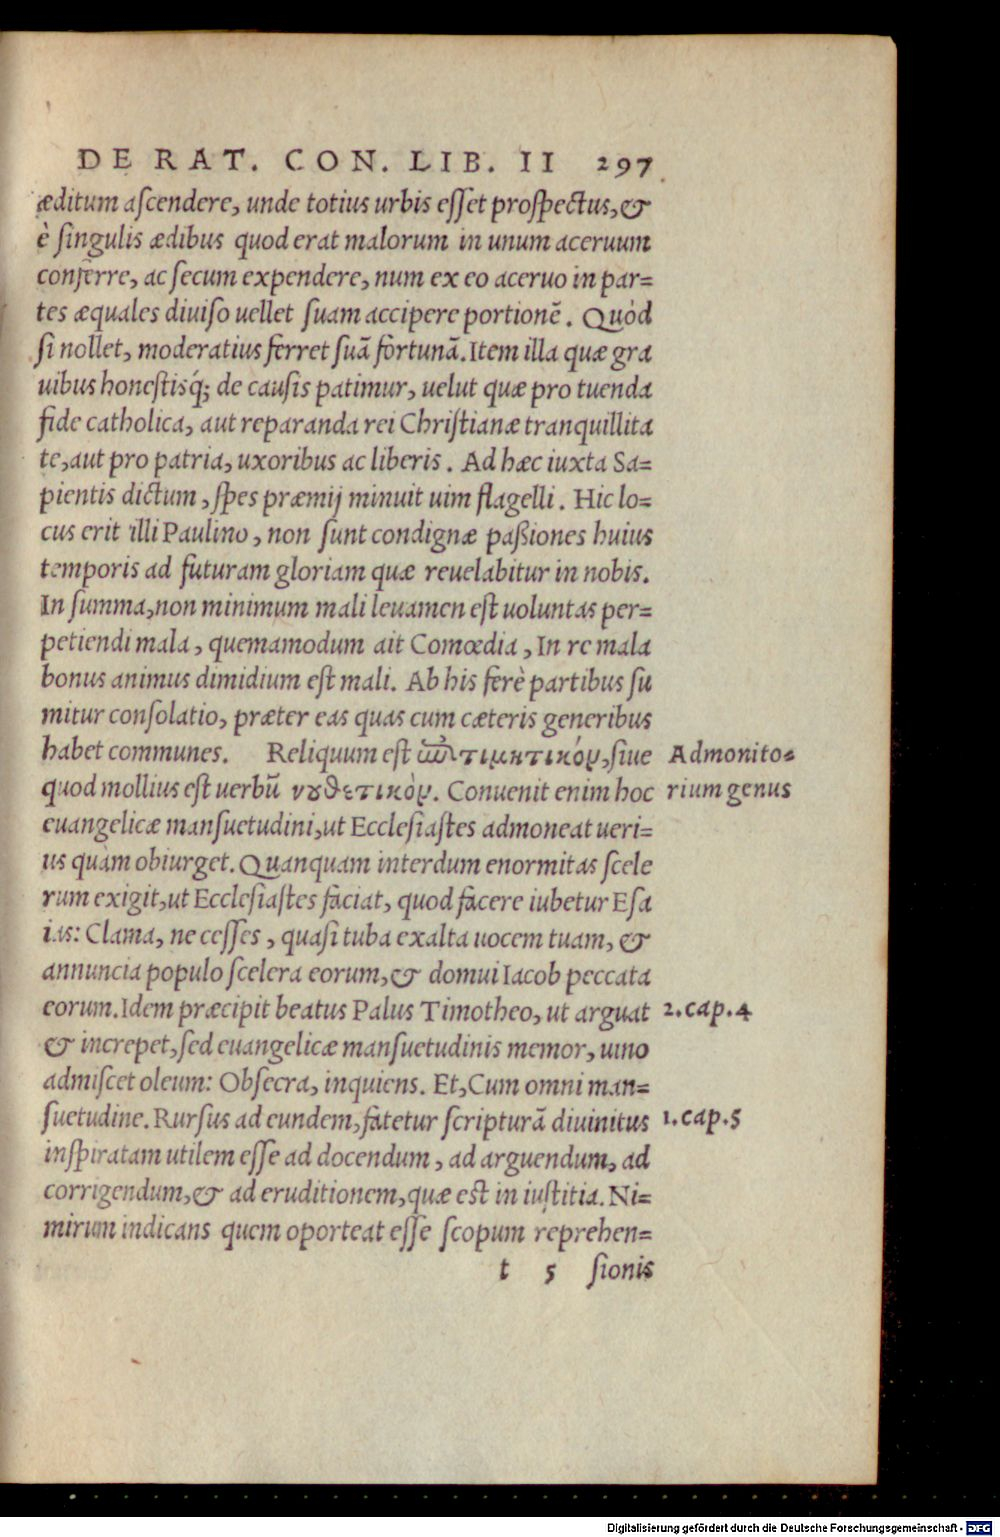 DE RAT. CON. LIB. II 297
æditum ascendere, unde totius urbis esset prospectus, &
è singulis ædibus quod erat malorum in unum aceruum
conferre, ac secum expendere, num ex eo aceruo in par=
tes æquales diuiso uellet suam accipere portionẽ. Quòd
si nollet, moderatius ferret suã fortunã. Item illa quæ gra
uibus honestisq́; de causis patimur, uelut quæ pro tuenda
fide catholica, aut reparanda rei Christianæ tranquillita
te, aut pro patria, uxoribus ac liberis. Ad hæc iuxta Sa=
pientis dictum, spes præmij minuit uim flagelli. Hic lo=
cus erit illi Paulino, non sunt condignæ paßiones huius
temporis ad futuram gloriam quæ reuelabitur in nobis.
In summa, non minimum mali leuamen est uoluntas per=
petiendi mala, quemamodum ait Comœdia, In re mala
bonus animus dimidium est mali. Ab his ferè partibus su
mitur consolatio, præter eas quas cum cæteris generibus
habet communes. Reliquum est ἐπιτιμητικόν, siue
Admonito=
quod mollius est uerbũ νουθετικὸν. Conuenit enim hoc
rium genus
euangelicæ mansuetudini, ut Ecclesiastes admoneat ueri=
us quàm obiurget. Quanquam interdum enormitas scele
rum exigit, ut Ecclesiastes faciat, quod facere iubetur Esa
ias: Clama, ne cesses, quasi tuba exalta uocem tuam, &
annuncia populo scelera eorum, & domui Iacob peccata
eorum. Idem præcipit beatus Palus Timotheo, ut arguat
2. cap. 4
& increpet, sed euangelicæ mansuetudinis memor, uino
admiscet oleum: Obsecra, inquiens. Et, Cum omni man=
suetudine. Rursus ad eundem, fatetur scripturã diuinitus
1. cap. 5
inspiratam utilem esse ad docendum, ad arguendum, ad
corrigendum, & ad eruditionem, quæ est in iustitia. Ni=
mirum indicans quem oporteat esse scopum reprehen=
t 5 sionis
Digitalisierung gefördert durch die Deutsche Forschungsgemeinschaft - DFG